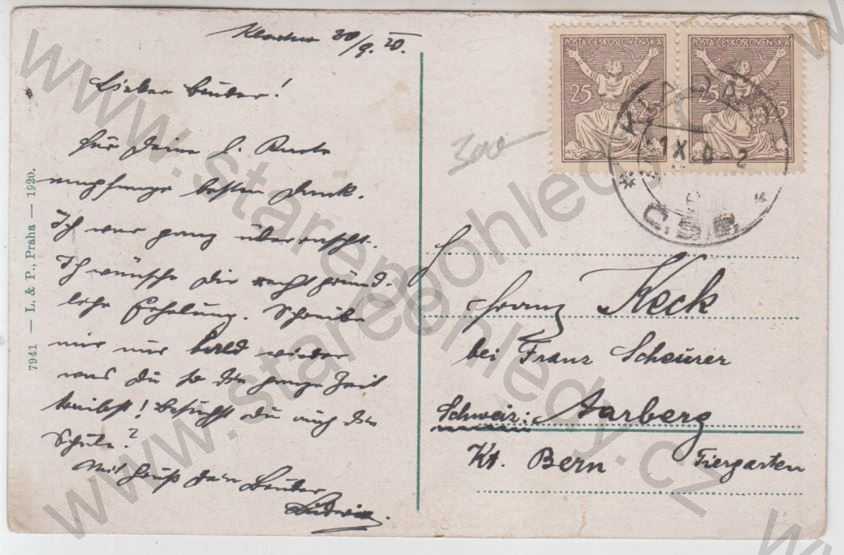 30/9.20.
Lieber Bruder!
Für Deine l. Karte
empfange besten Dank.
Ich war ganz überrascht.
Ich wünsche Dir recht gründ-
liche Erholung. Schreibe
mir nur bald wieder
was Du so die ganze Zeit
treibst! Besuchst Du auch die
Schule?
Mit Gruß Dein Bruder
Ludwig.
7941 — L. & P., Praha — 1920.
POŠTA ČESKOSLOVENSKÁ
25
POŠTA ČESKOSLOVENSKÁ
25 25
ČSR
Franz Keck
bei Franz Scheurer
Schweiz: Aarberg
Kt. Bern Tiergarten
www.starepohledy.cz